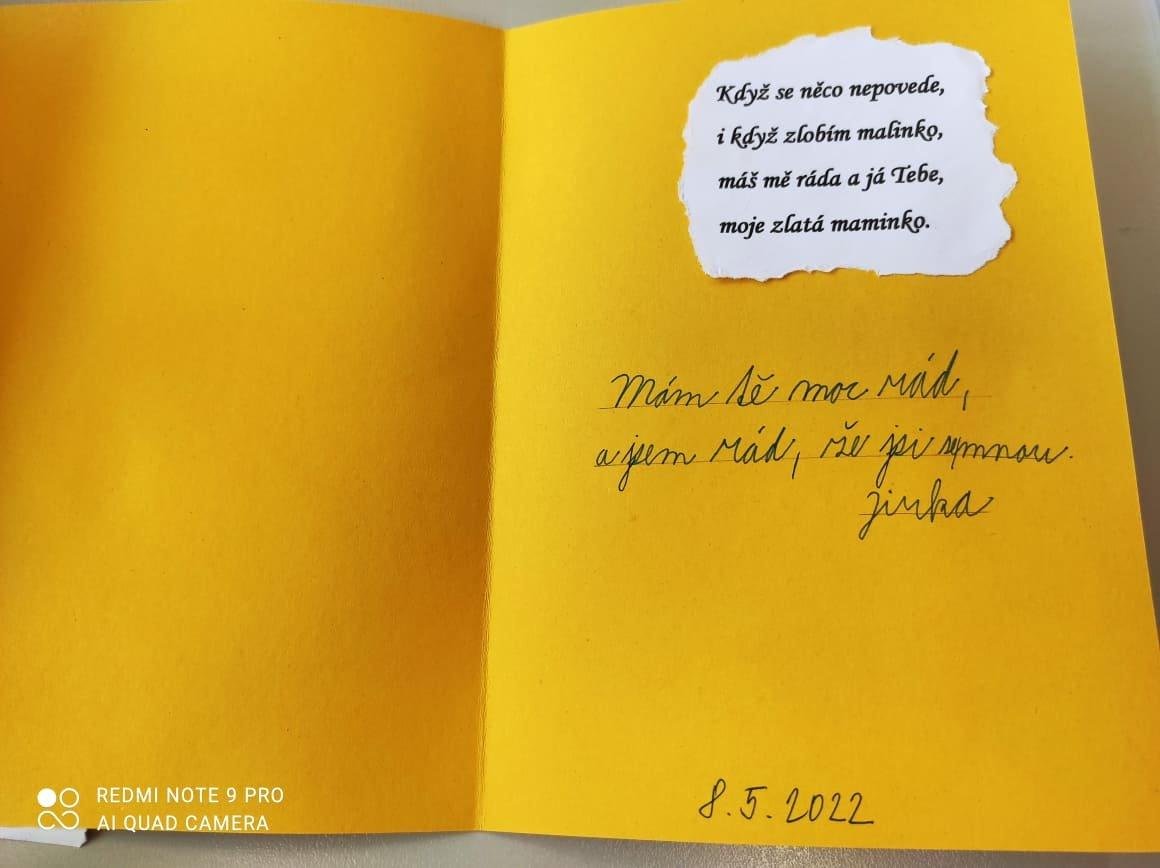 Když se něco nepovede,
i když zlobím malinko,
máš mě ráda a já Tebe,
moje zlatá maminko.
Mám tě moc rád,
a jsem rád, že jsi semnou.
Jirka
8.5.2022
REDMI NOTE 9 PRO
AI QUAD CAMERA